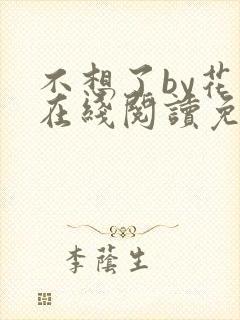 不想了by花
在綫閱讀免
李蔭生